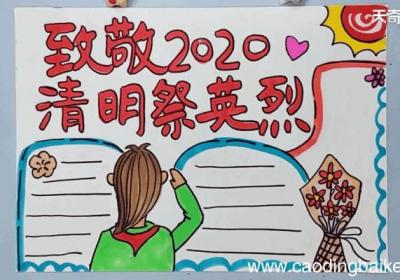 天奇
致敬2020
清明祭英烈
www.caodingbaike